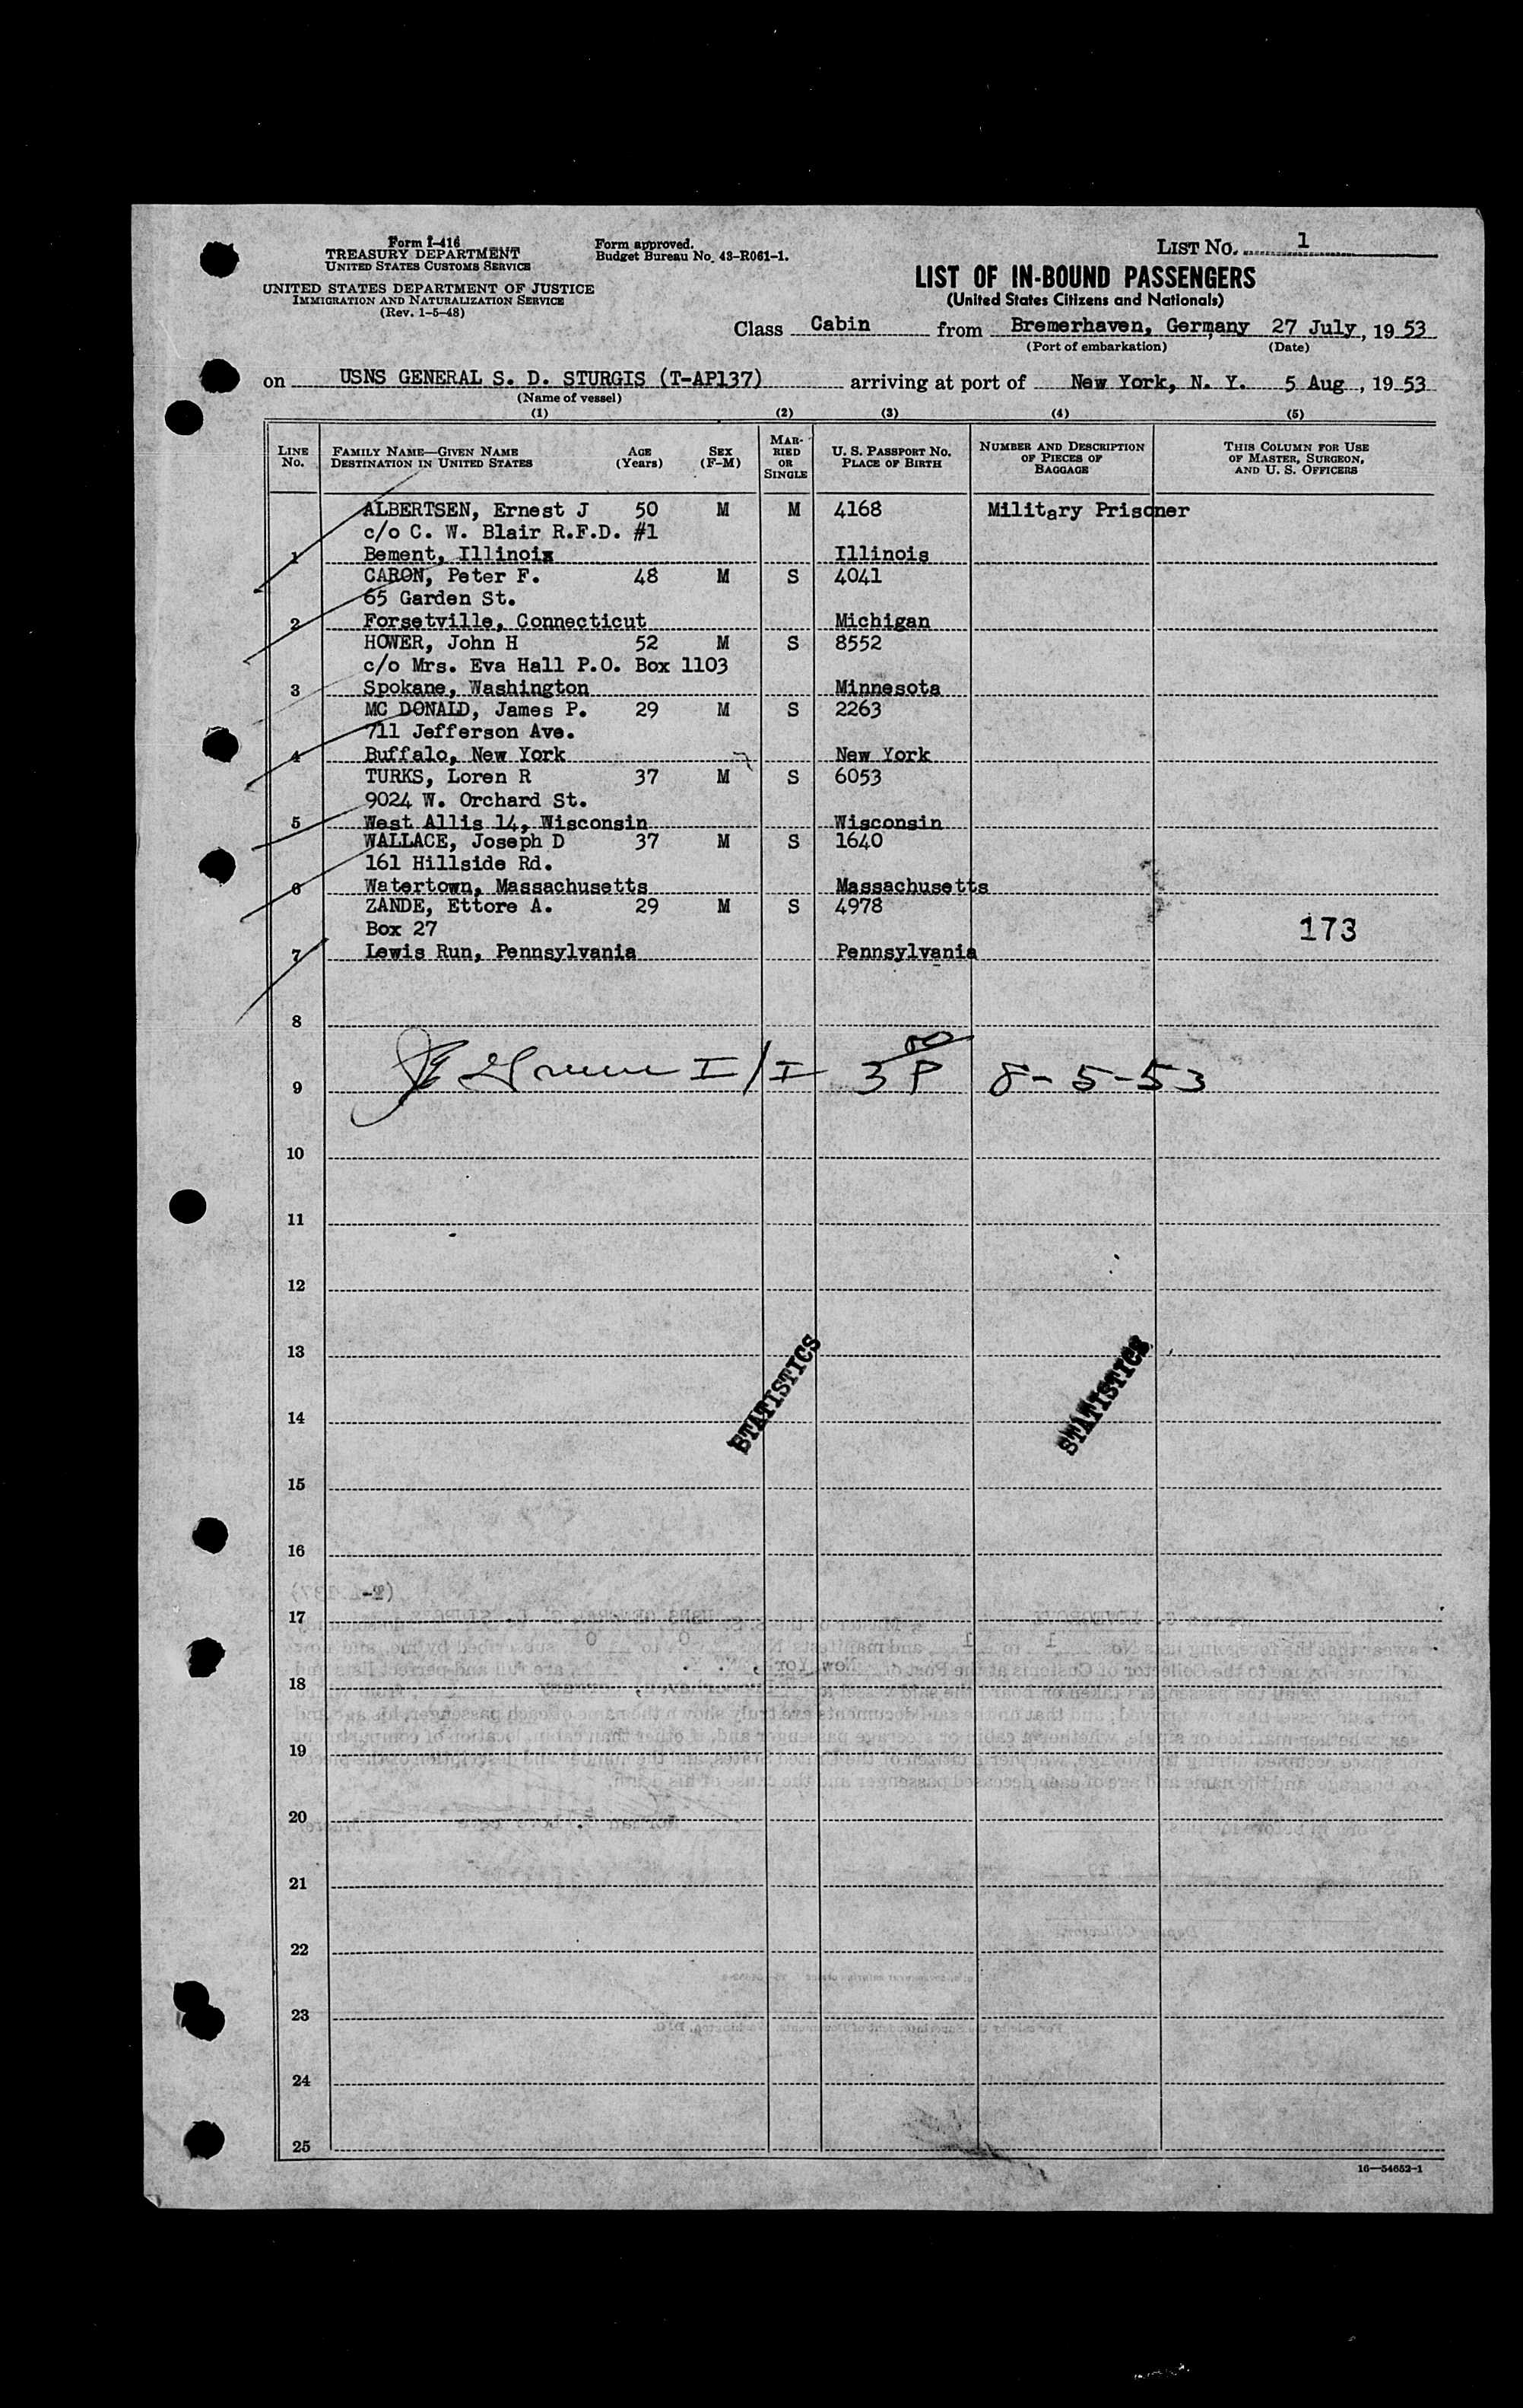 Form I-416
TREASURY DEPARTMENT
UNITED STATES CUSTOMS SERVICE
UNITED STATES DEPARTMENT OF JUSTICE
IMMIGRATION AND NATURALIZATION SERVICE
(Rev. 1-5-48)
Form approved.
Budget Bureau No. 43-R061-1.
LIST NO. 1
LIST OF IN-BOUND PASSENGERS
(United States Citizens and Nationals)
Class Cabin from Bremerhaven, Germany 27 July, 19 53
(Port of embarkation) (Date)
on USNS GENERAL S. D. STURGIS (T-AP137) arriving at port of New York, N. Y. 5 Aug, 19 53
(Name of vessel)
(1) (2) (3) (4) (5)
LINE NO. FAMILY NAME—GIVEN NAME DESTINATION IN UNITED STATES AGE (Years) SEX (F-M) MARRIED OR SINGLE U. S. PASSPORT NO. PLACE OF BIRTH NUMBER AND DESCRIPTION OF PIECES OF BAGGAGE THIS COLUMN FOR USE OF MASTER, SURGEON, AND U. S. OFFICERS
ALBERTSEN, Ernest J 50 M M 4168 Military Prisoner
c/o C. W. Blair R.F.D. #1
1 Bement, Illinois Illinois
CARON, Peter F. 48 M S 4041
65 Garden St.
2 Forsetville, Connecticut Michigan
HOWER, John H 52 M S 8552
c/o Mrs. Eva Hall P.O. Box 1103
3 Spokane, Washington Minnesota
MC DONALD, James P. 29 M S 2263
711 Jefferson Ave.
4 Buffalo, New York New York
TURKS, Loren R 37 M S 6053
9024 W. Orchard St.
5 West Allis 14, Wisconsin Wisconsin
WALLACE, Joseph D 37 M S 1640
161 Hillside Rd.
6 Watertown, Massachusetts Massachusetts
ZANDE, Ettore A. 29 M S 4978
Box 27 173
7 Lewis Run, Pennsylvania Pennsylvania
8
9 I/I 3 00 P 8-5-53
10
11
12
13
STATISTICS STATISTICS
14
15
16
17
18
19
20
21
22
23
24
25
16—54652-1